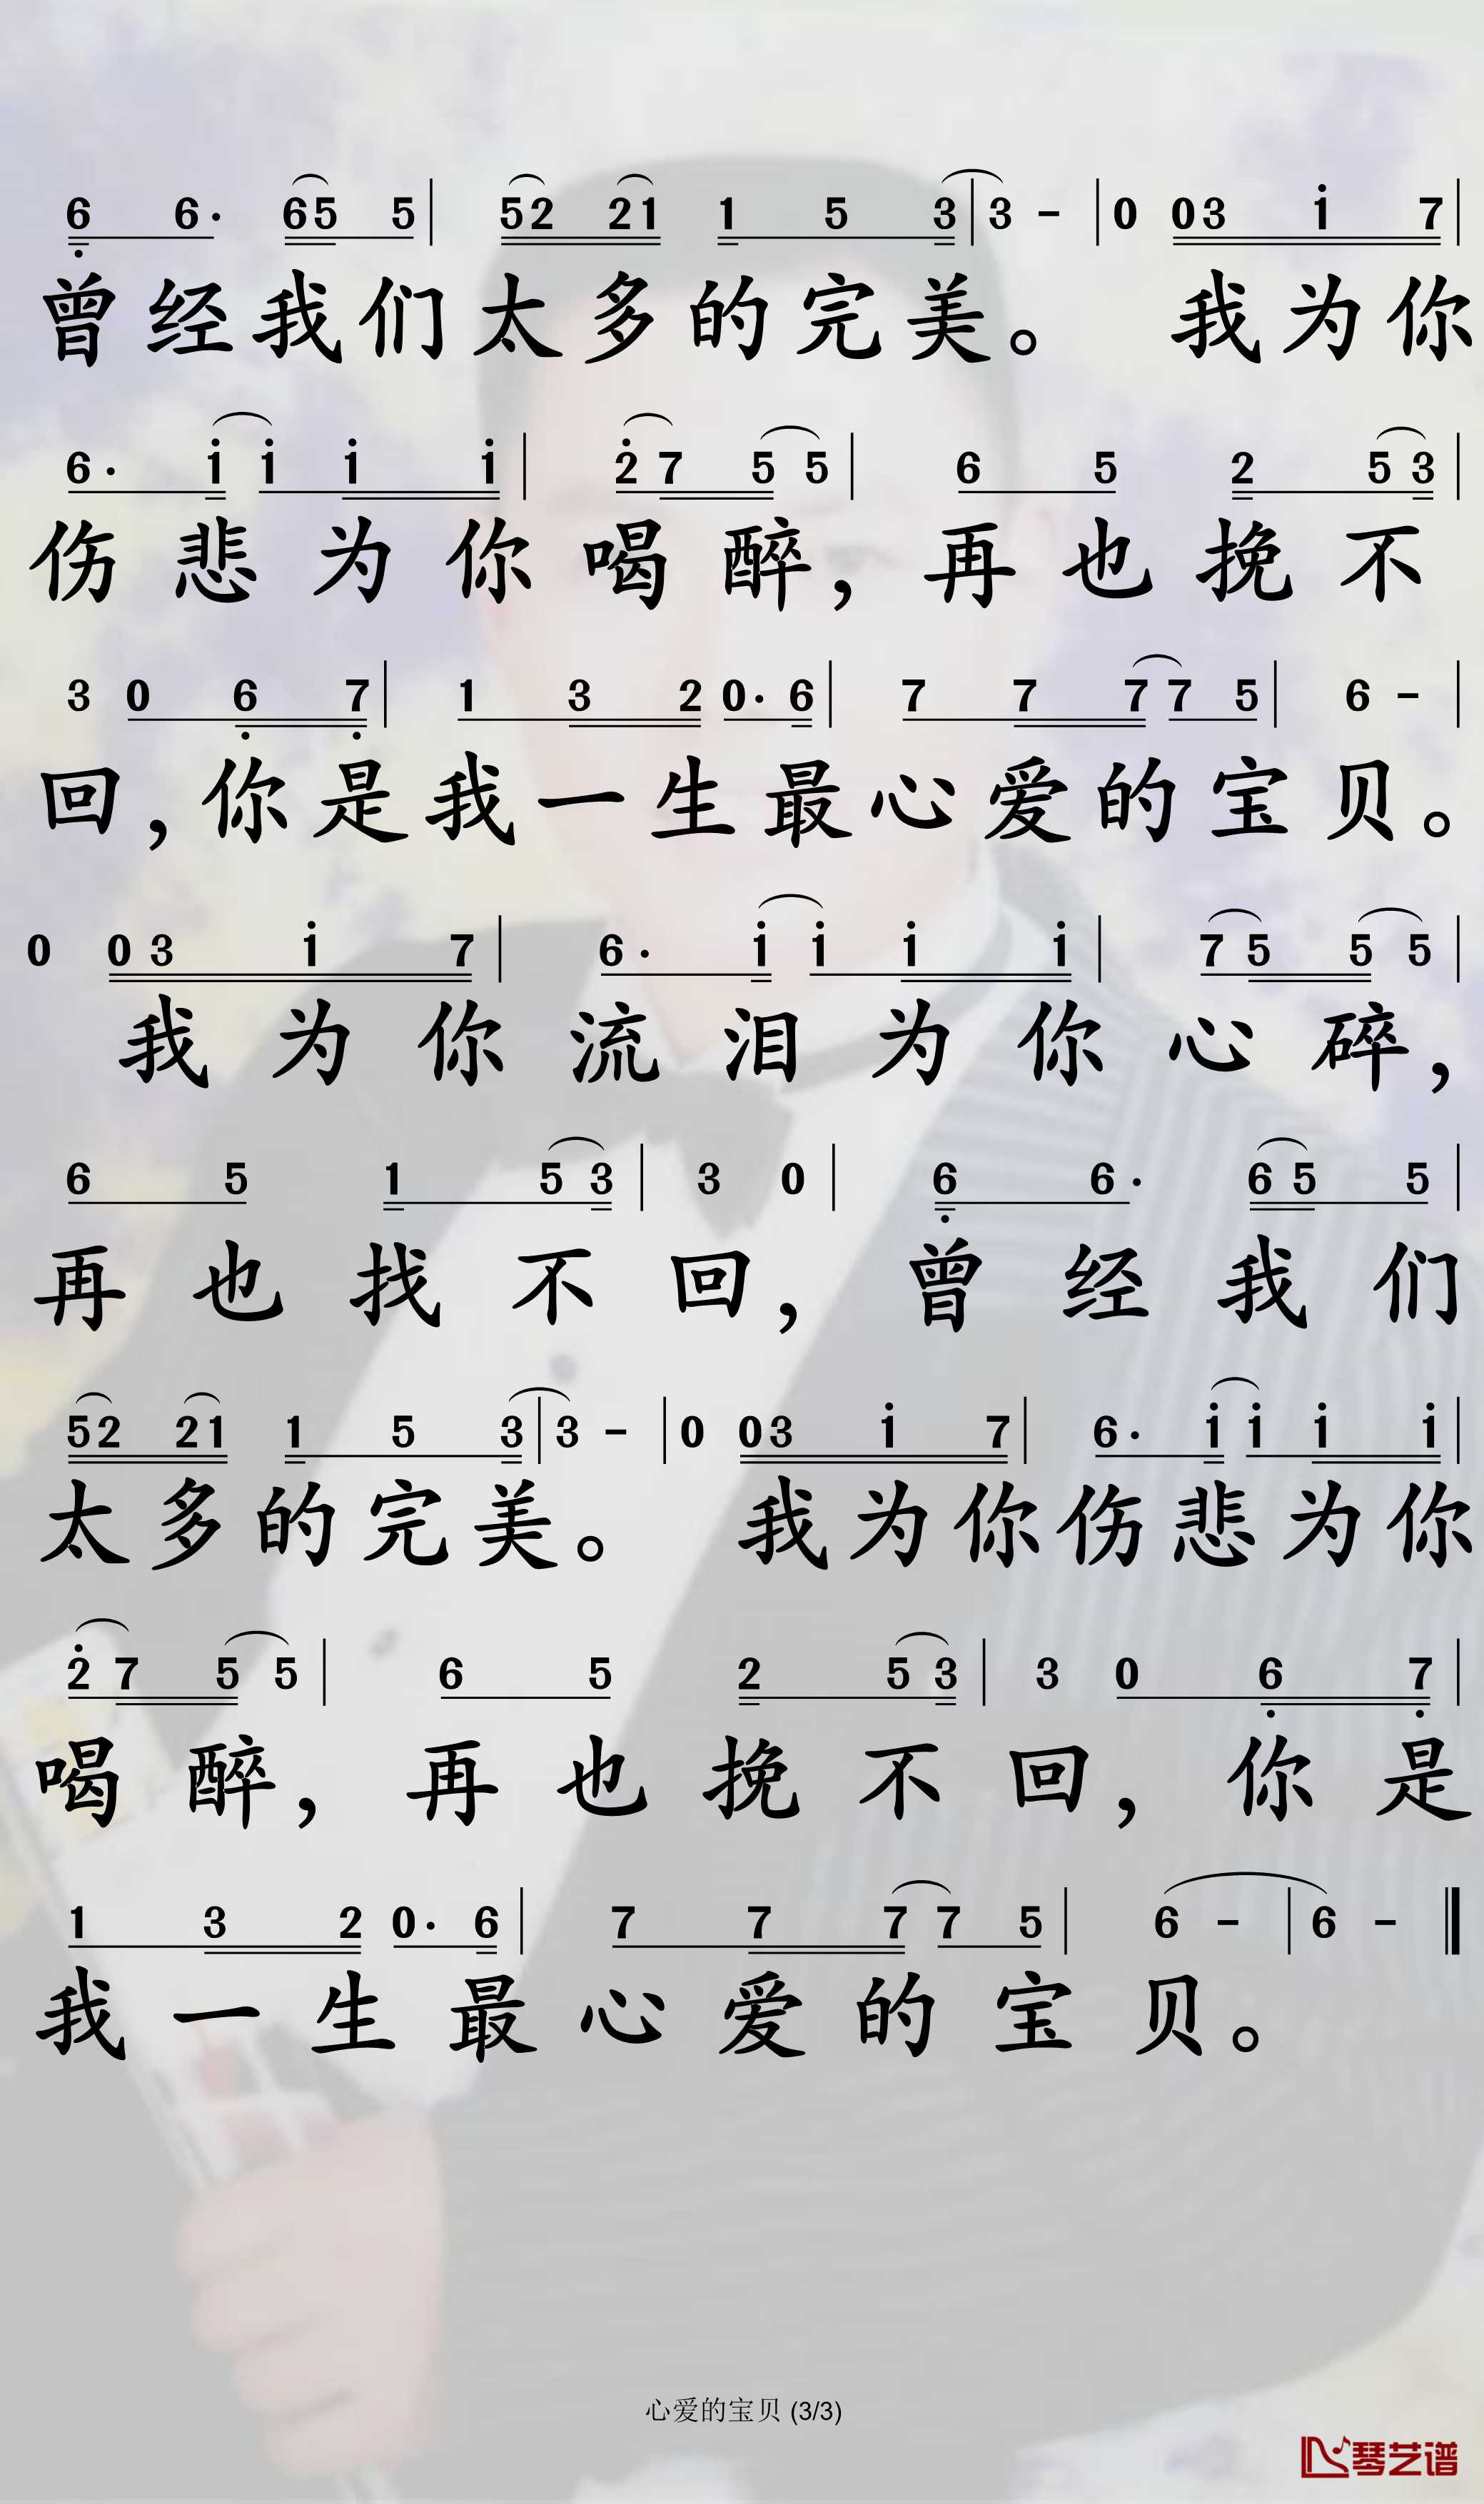 6 6· 65 5 | 52 21 1 5 3 | 3 - | 0 03 i 7 |
曾经我们太多的完美。 我为你
6· i i i i | 2 7 5 5 | 6 5 2 5 3 |
伤悲为你喝醉，再也挽不
3 0 6 7 | 1 3 2 0· 6 | 7 7 7 7 5 | 6 - |
回，你是我一生最心爱的宝贝。
0 0 3 i 7 | 6· i i i i | 7 5 5 5 |
我为你流泪为你心碎，
6 5 1 5 3 | 3 0 | 6 6· 6 5 5 |
再也找不回，曾经我们
52 21 1 5 3 | 3 - | 0 03 i 7 | 6· i i i i |
太多的完美。 我为你伤悲为你
2 7 5 5 | 6 5 2 5 3 | 3 0 6 7 |
喝醉，再也挽不回，你是
1 3 2 0· 6 | 7 7 7 7 5 | 6 - | 6 - ‖
我一生最心爱的宝贝。
心爱的宝贝 (3/3)
琴艺谱